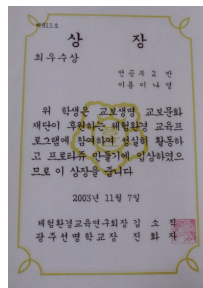 제913호
상 장
최우수상
전공부 2 반
이름 이 나 영
위 학생은 교보생명 교보문화
재단이 후원하는 체험환경 교육프
로그램에 참여하여 성실히 활동하
고 프로타쥬 만들기에 입상하였으
므로 이 상장을 줍니다
2003년 11월 7일
체험환경교육연구회장 김 소
광주선명학교장 진 화 자